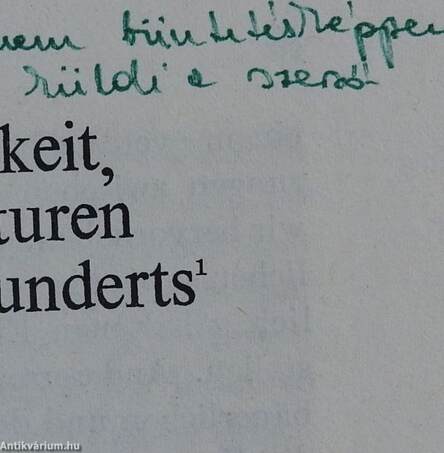 nem büntetésképpen
küldi a szerző
keit,
turen
underts¹
Antikvárium.hu